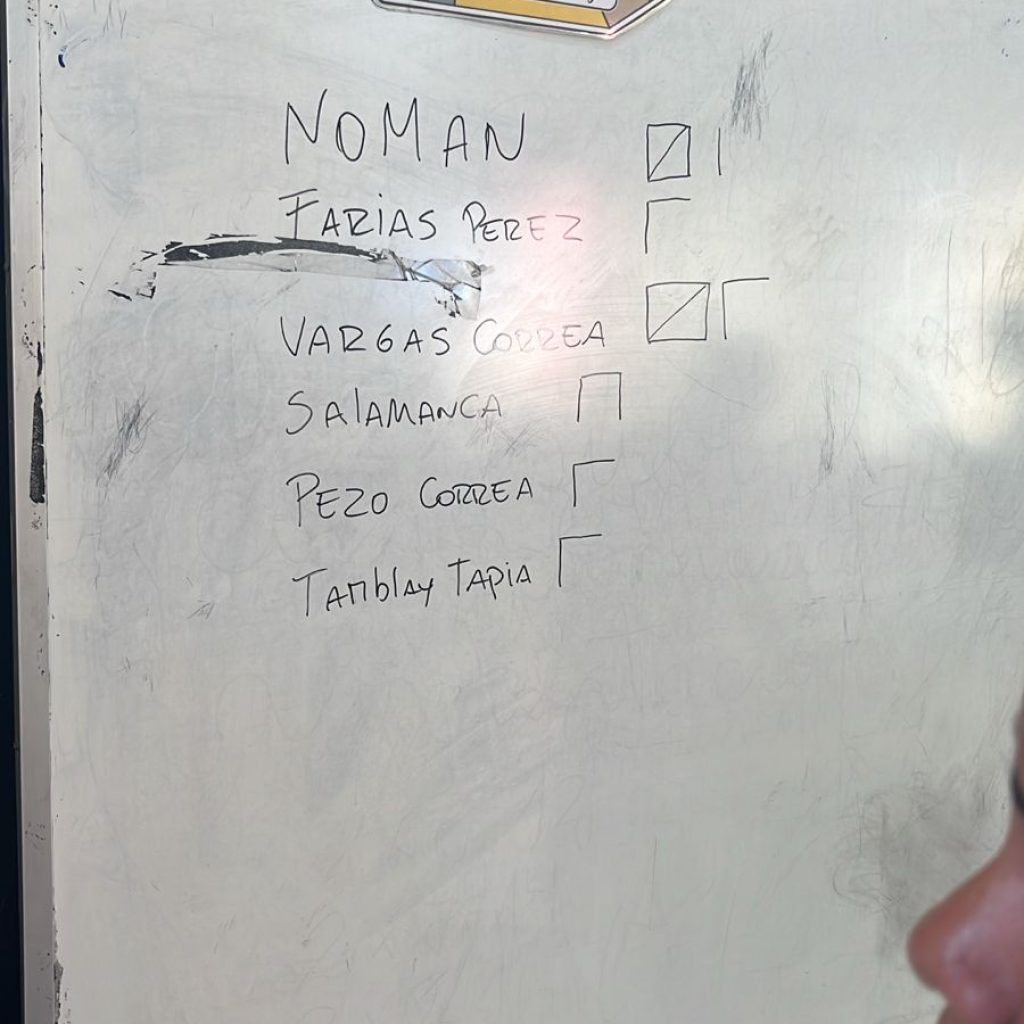 NOMAN
FARiAS PEREZ
VARGAS CORREA
SAlAMANCA
PEZO CORREA
TAMblAy TApiA